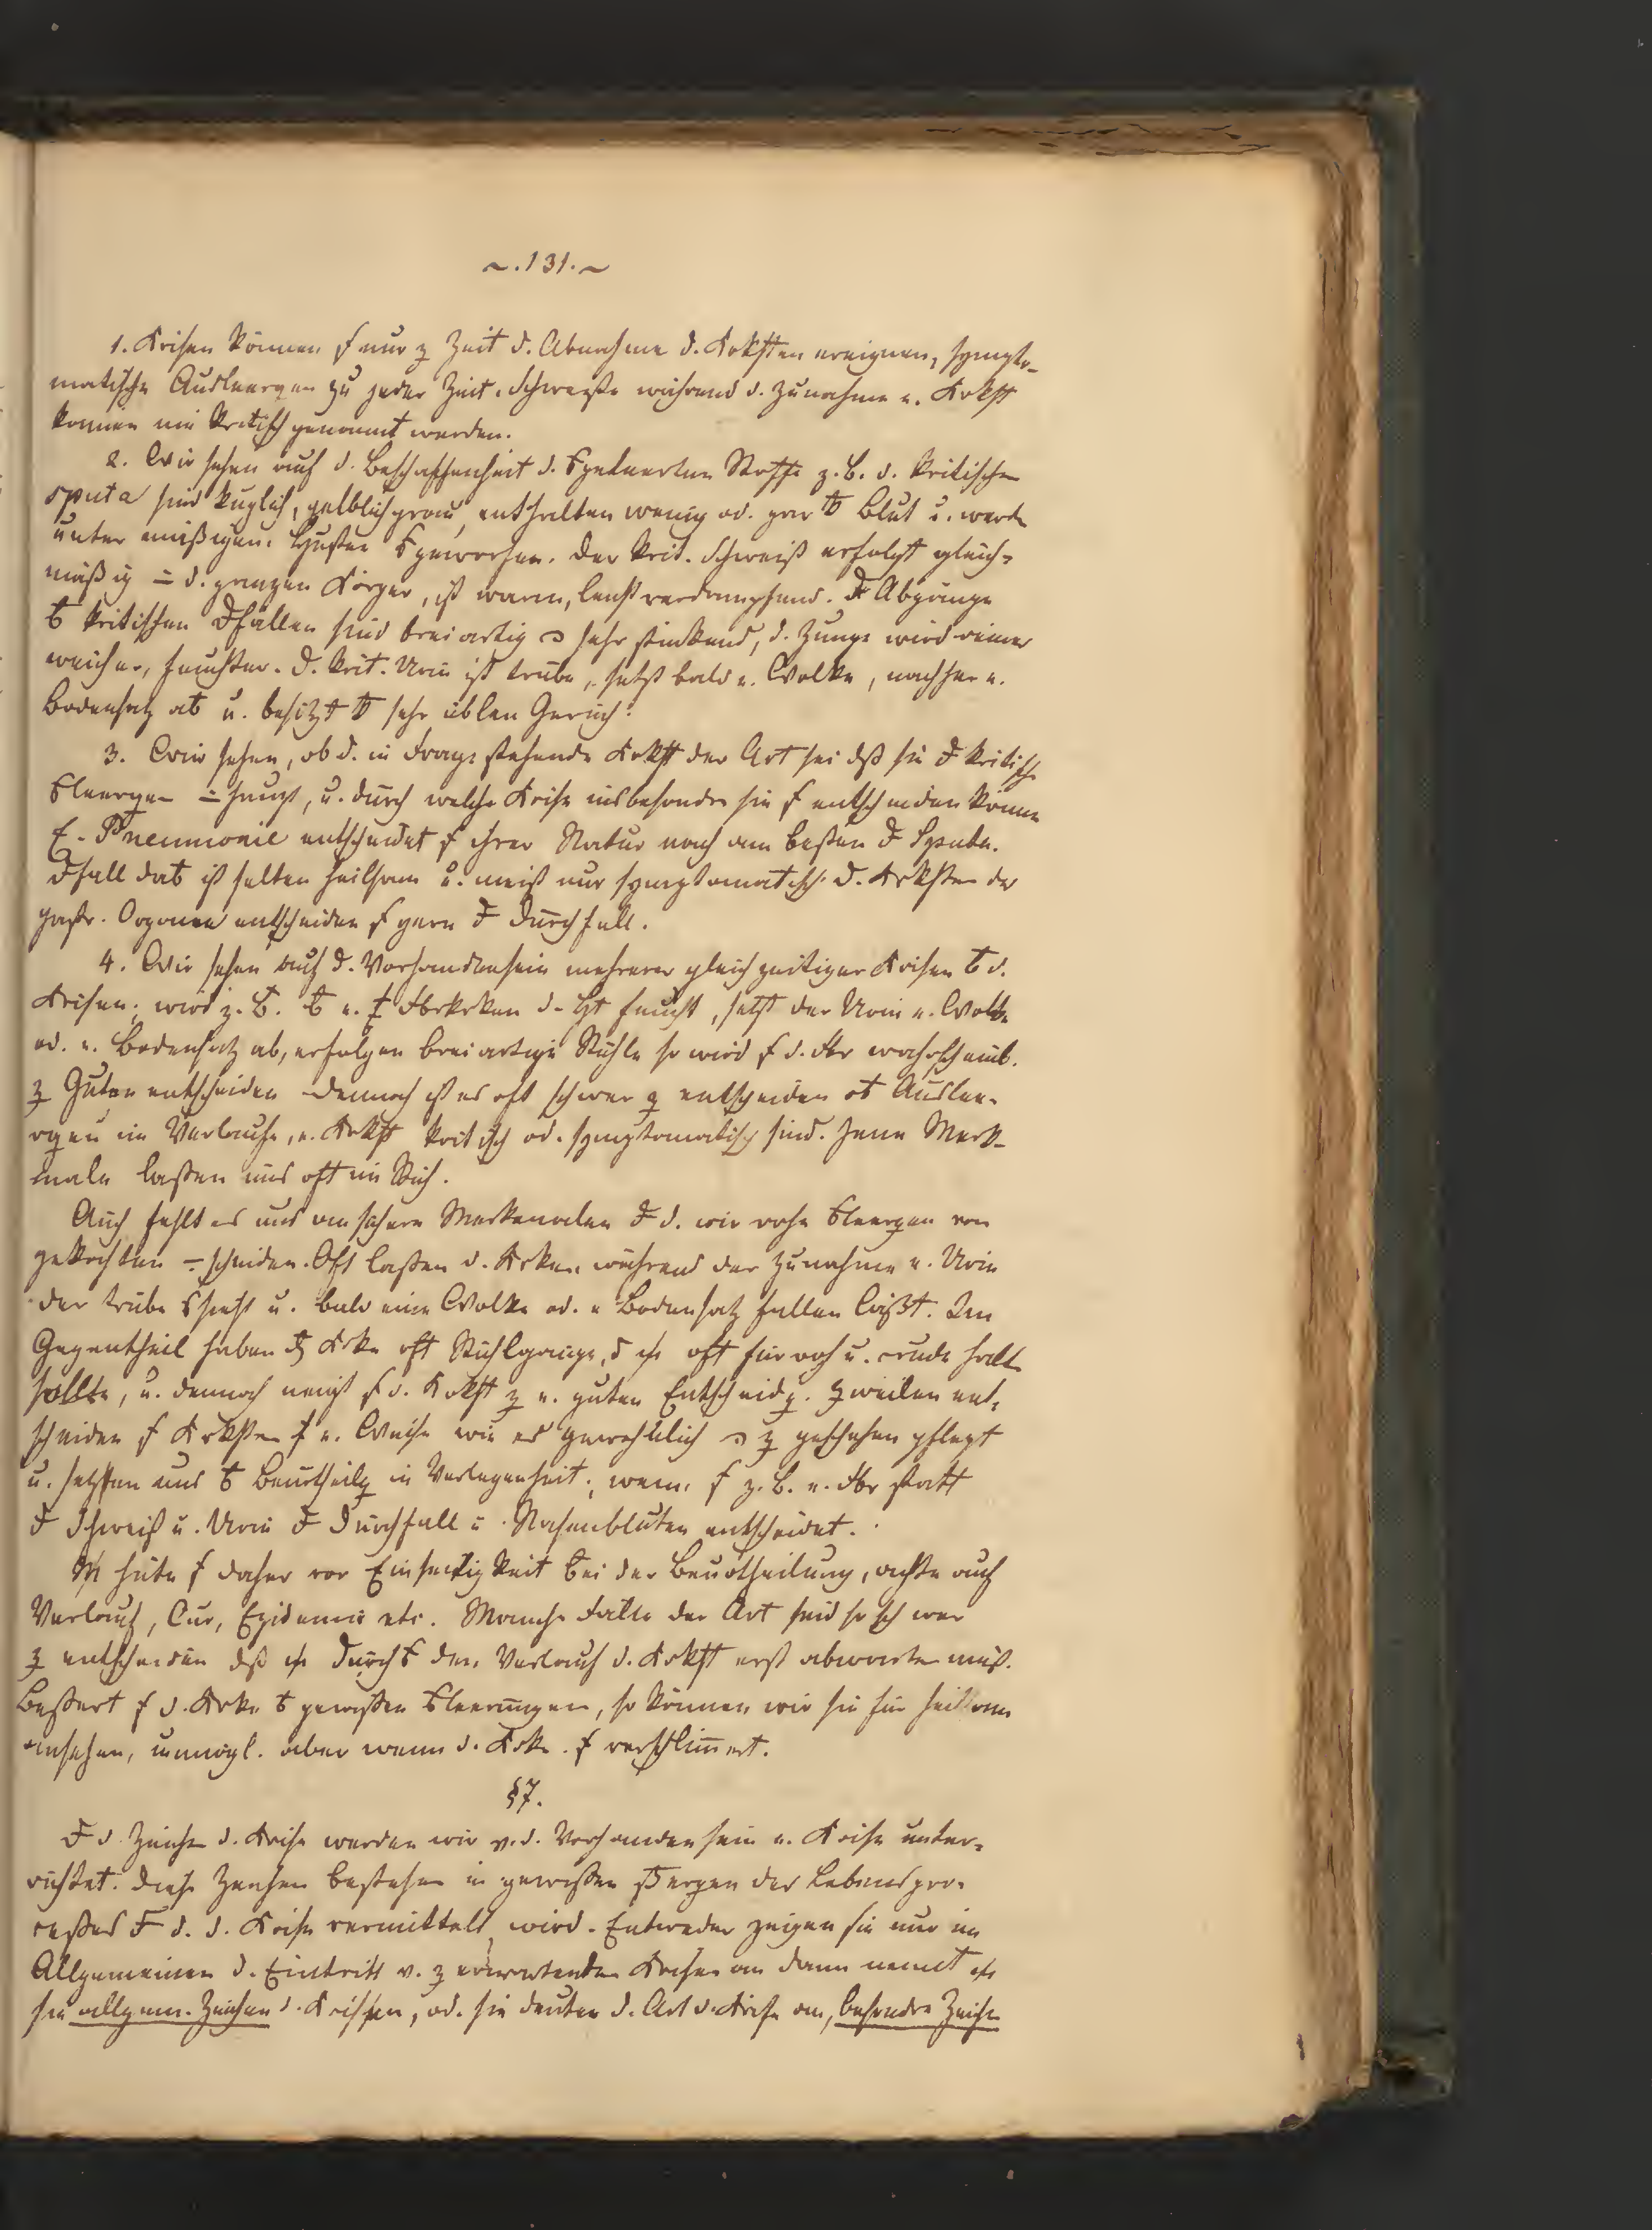 ~.131.~
1. Krisen können f nur z Zeit d. Abnahme d. Krkhten ereignen, sympto-
matische Ausleergen zu jeder Zeit. Schweiße während d. Zunahme e. Krkht
können nie kritisch genannt werden.
2. Wir sehen auf d. Beschaffenheit d. geleerten Stoffe z. B. d. kritischen
sputa sind kuglich, gelblichgrau, enthalten wenig od. gar Blut u. werden
unter mäßigem Husten geworfen. Der krit. Schweiß erfolgt gleich-
mäßig d. ganzen Körper, ist warm, leicht verdampfend. Abgänge
kritischen fällen sind breiartig sehr stinkend, d. Zunge wird reiner
weicher, feuchter. D. krit. Urin ist trübe, setzt bald e. Wolke, nachher e.
Bodensatz ab u. besitzt sehr üblen Geruch.
3. Wir sehen, ob d. in Frage stehende Krkht der Art sei dß sie kritische
leergen haupt, u. durch welche Krise insbesondre sie f entscheiden könne
E. Pneumonie entscheidet f ihrer Natur nach am besten Sputa.
fall dab ist selten heilsam u. meist nur symptomatisch. D. Krkhten der
gastr. Organe entscheiden f gern Durchfall.
4. Wir sehen auf d. Vorhandensein mehrerer gleichzeitiger Krisen d.
Krisen; wird z. B. e. d. Ht feucht, setzt der Urin e. Wolke
od. e. Bodensatz ab, erfolgen breiartige Stühle so wird f d. Fbr wahrscheinl.
z Guten entscheiden. Dennoch ist es oft schwer z entscheiden ob Auslee-
rgen im Verlaufe e. Krkht kritisch od. symptomatisch sind. Jene Merk-
male laßen uns oft im Stich.
Auch fehlt es uns an sichern Merkmalen d. wir rohe leergen von
gekochten scheiden. Oft laßen d. Krken während der Zunahme e. Urin
der trübe sieht u. bald eine Wolke od. e Bodensatz fallen läßt. Im
Gegentheil haben Krke oft Stuhlgänge, oft für roh u. crude halten
sollte, u. dennoch neigt f d. Krkht z e. guten Entscheidg. Zweilen ent-
scheiden f Krkhten e. Weise wie es gewöhnlich z geschehen pflegt
u. setzen uns Beurtheilg in Verlegenheit; wenn f z. B. e. Fbr statt
Schweiß u. Urin Durchfall u. Nasenbluten entscheidet.
hüte f daher vor Einseitigkeit bei der Beurtheilung, achte auf
Verlauf, Cur, Epidemie etc. Manche Fälle der Art sind so schwer
z entscheiden dß den Verlauf d. Krkht erst abwarten muß.
Beßert f d. Krke gewißen leerungen, so können wir sie für heilsam
ansehen, unmögl. aber wenn d. Krke f verschlimert.
§7.
d Zeichen d. Krise werden wir v. d. Vorhandensein e. Krise unter-
richtet. Diese Zeichen bestehen in gewißen ergen der Lebenspro-
ceßes d. d. Krise vermittelt wird. Entweder zeigen sie nur im
Allgemeinen d. Eintritt v. z erwartenden Krisen an dann nennt
sie allgem. Zeichen d. Krisen, od. sie deuten d. Art d. Krise an, besondre Zeichen